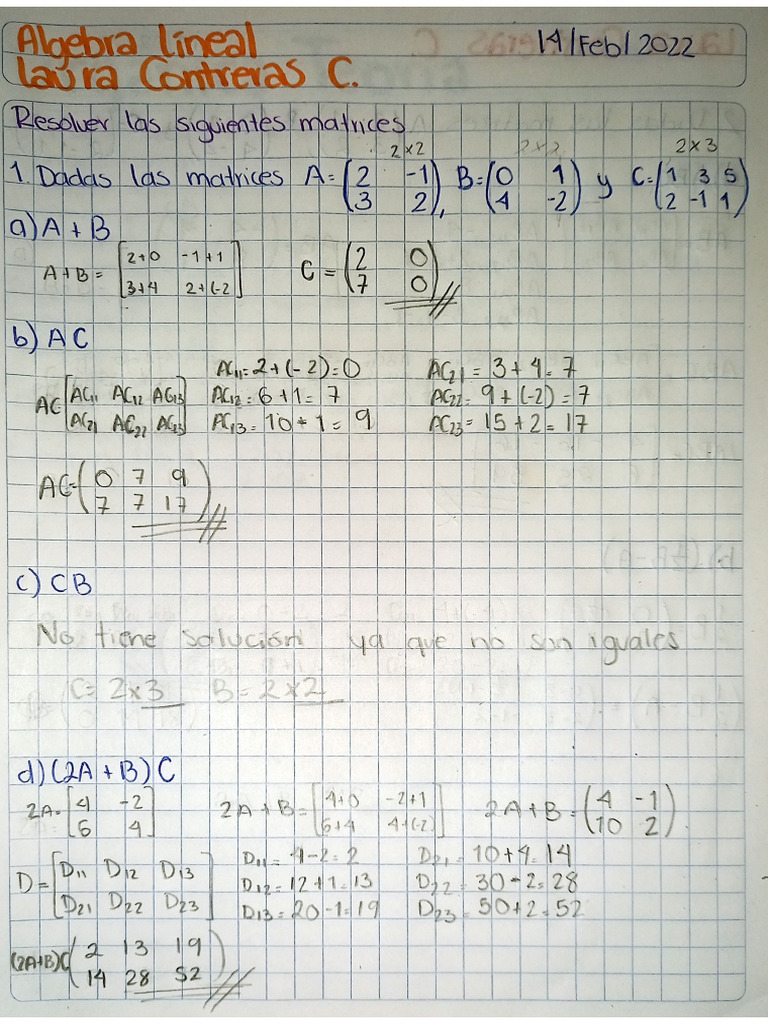 Algebra lineal
Laura Contreras C.
14/Feb/2022
Resolver las siguientes matrices
2x2 2x2 2x3
1. Dadas las matrices A=(2 -1 B=(0 1) y C=(1 3 5
3 2), 4 -2) 2 -1 1)
a) A+B
A+B= [2+0 -1+1
3+4 2+(-2]
C = (2 0
7 0)
b) AC
AC[AC11 AC12 AC13
AC21 AC22 AC23]
AC11=2+(-2)=0
AC12=6+1=7
AC13=10+1=9
AC21=3+4=7
AC22=9+(-2)=7
AC23=15+2=17
AC=(0 7 9
7 7 17)
c) CB
No tiene solución ya que no son iguales
C=2x3 B=2x2
d) (2A+B)C
2A=[4 -2
6 4]
2A+B=[4+0 -2+1
6+4 4+(-2)]
2A+B=(4 -1
10 2)
D=[D11 D12 D13
D21 D22 D23]
D11=4-2=2
D12=12+1=13
D13=20-1=19
D21=10+4=14
D22=30-2=28
D23=50+2=52
(2A+B)C(2 13 19
14 28 52)